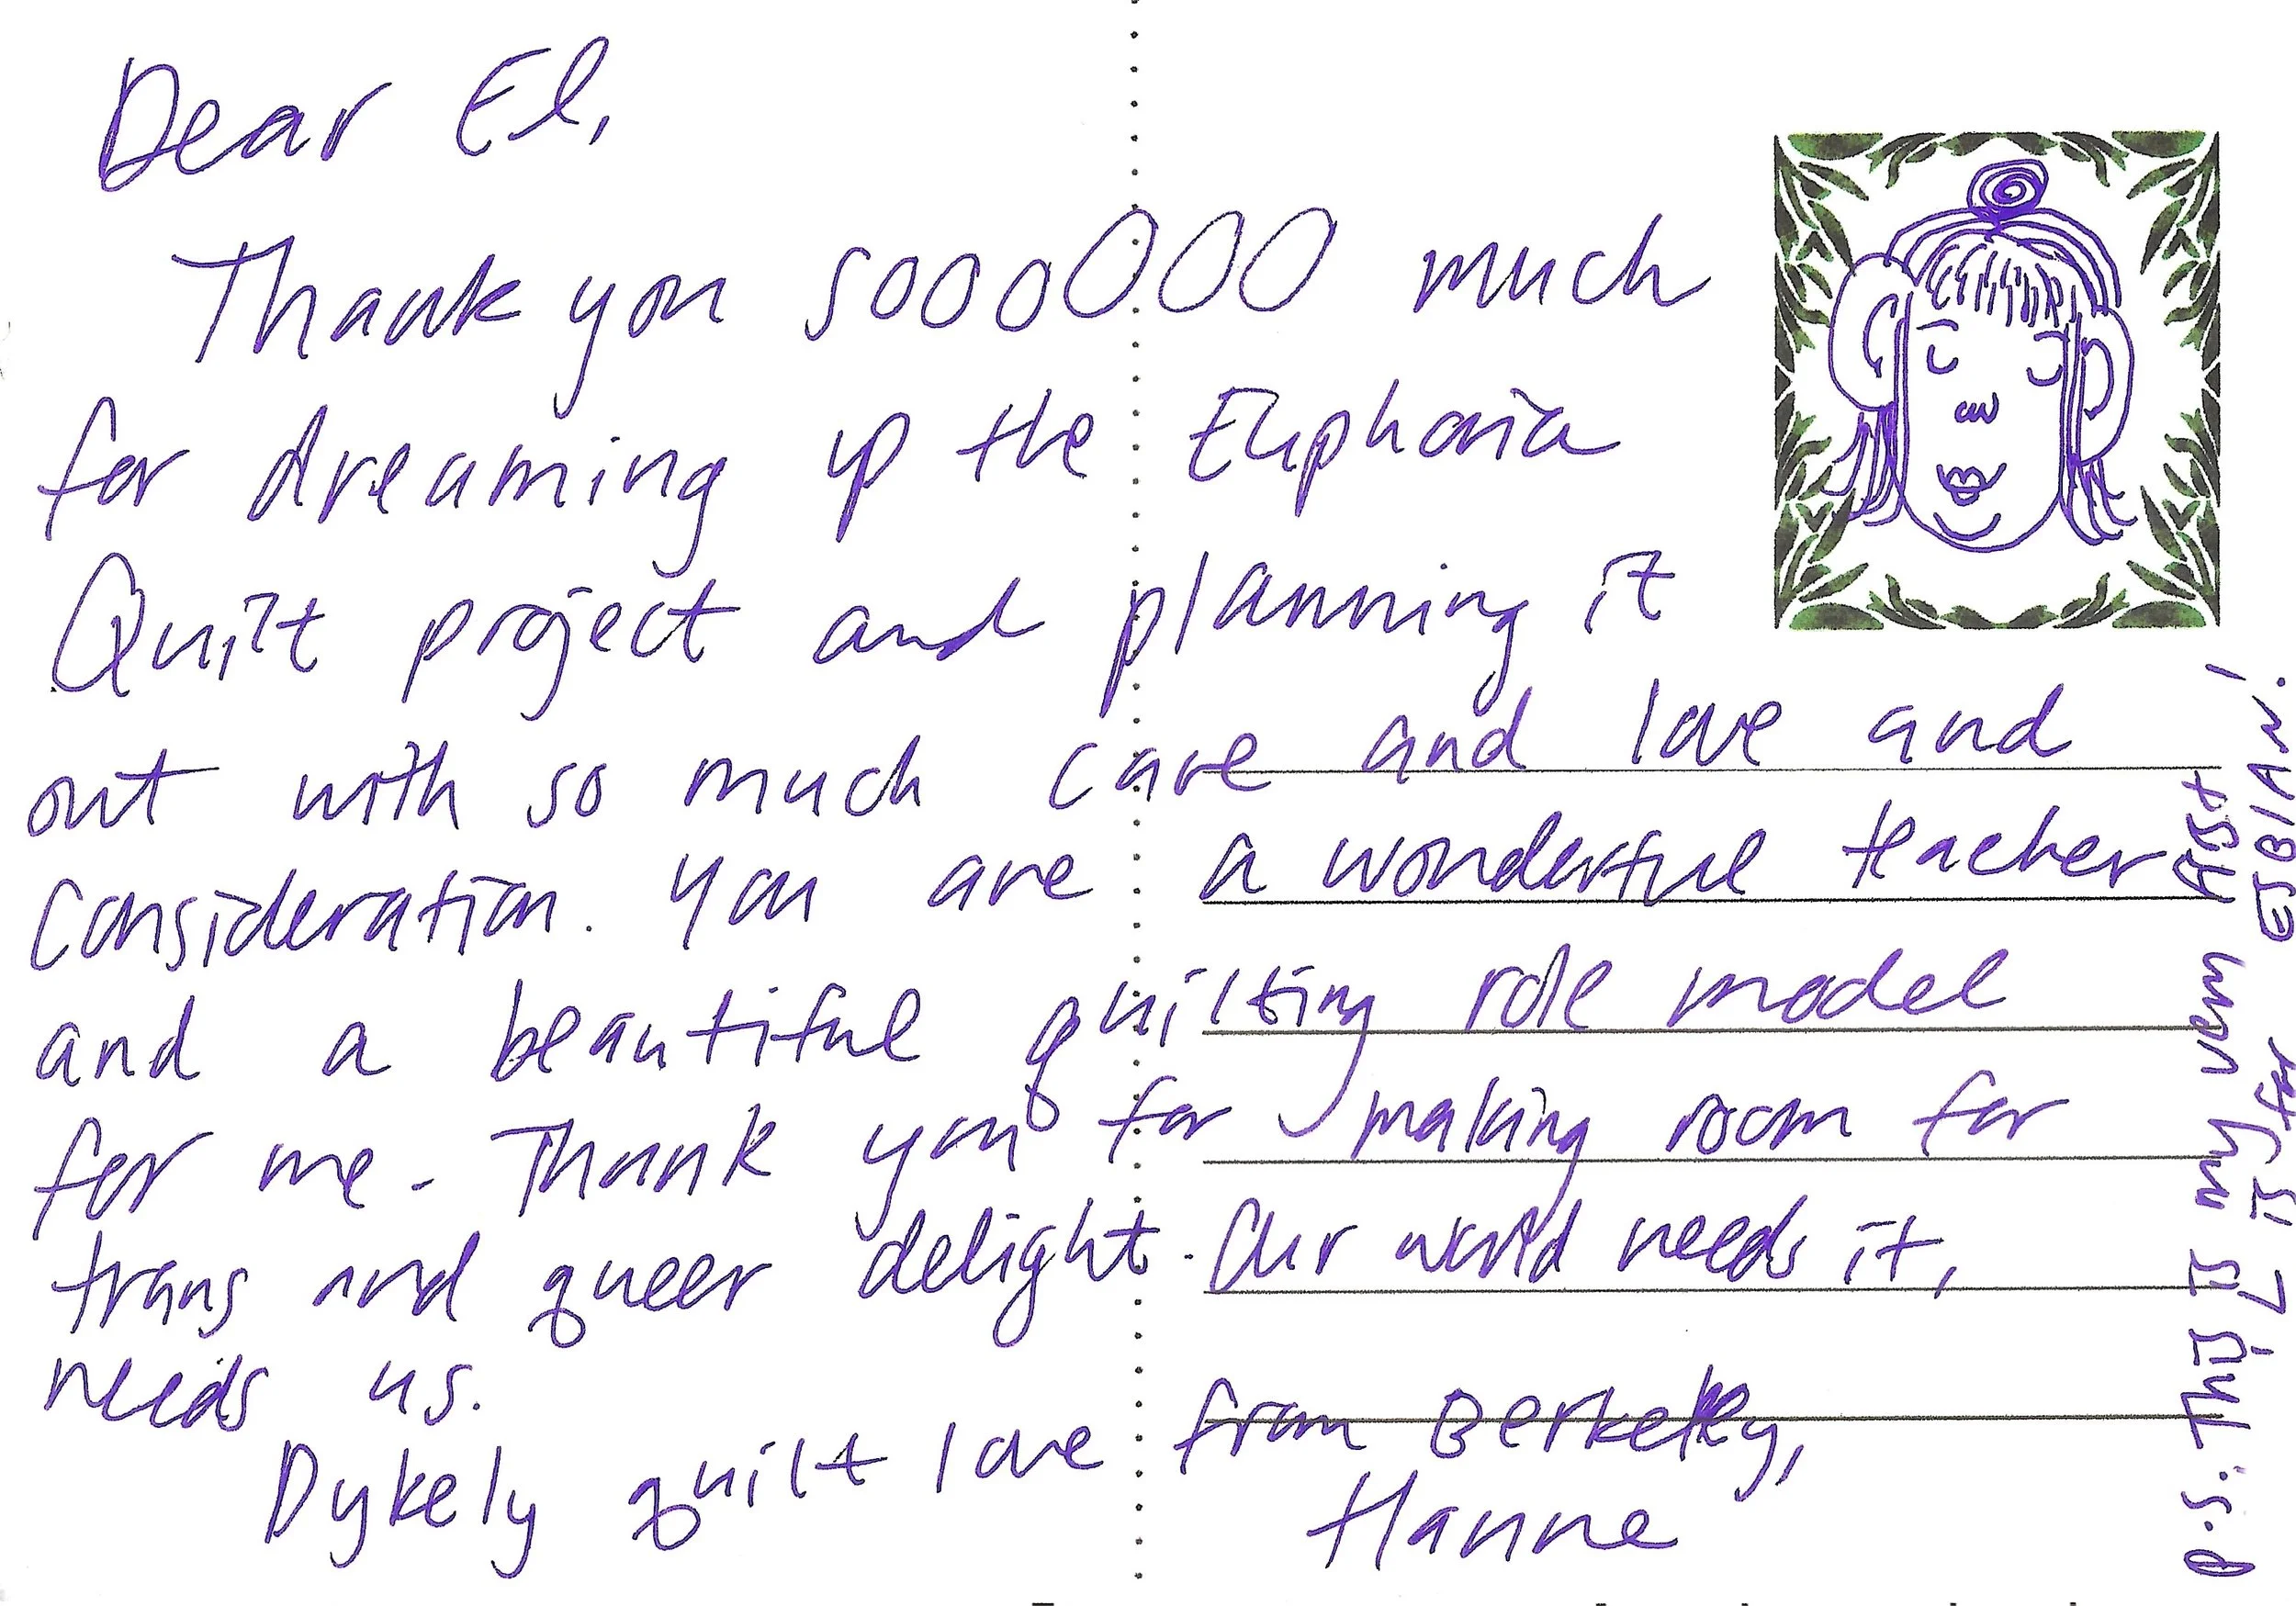 Dear El,
Thank you sooo000 much
for dreaming up the Euphoria
Quilt project and planning it
out with so much care and love and
consideration. You are a wonderful teacher
and a beautiful quilting role model
for me. Thank you for making room for
trans and queer delight. Our world needs it,
needs us.
Dykely quilt love from Berkeley,
Hanne
P.S. This is my very first
L is for